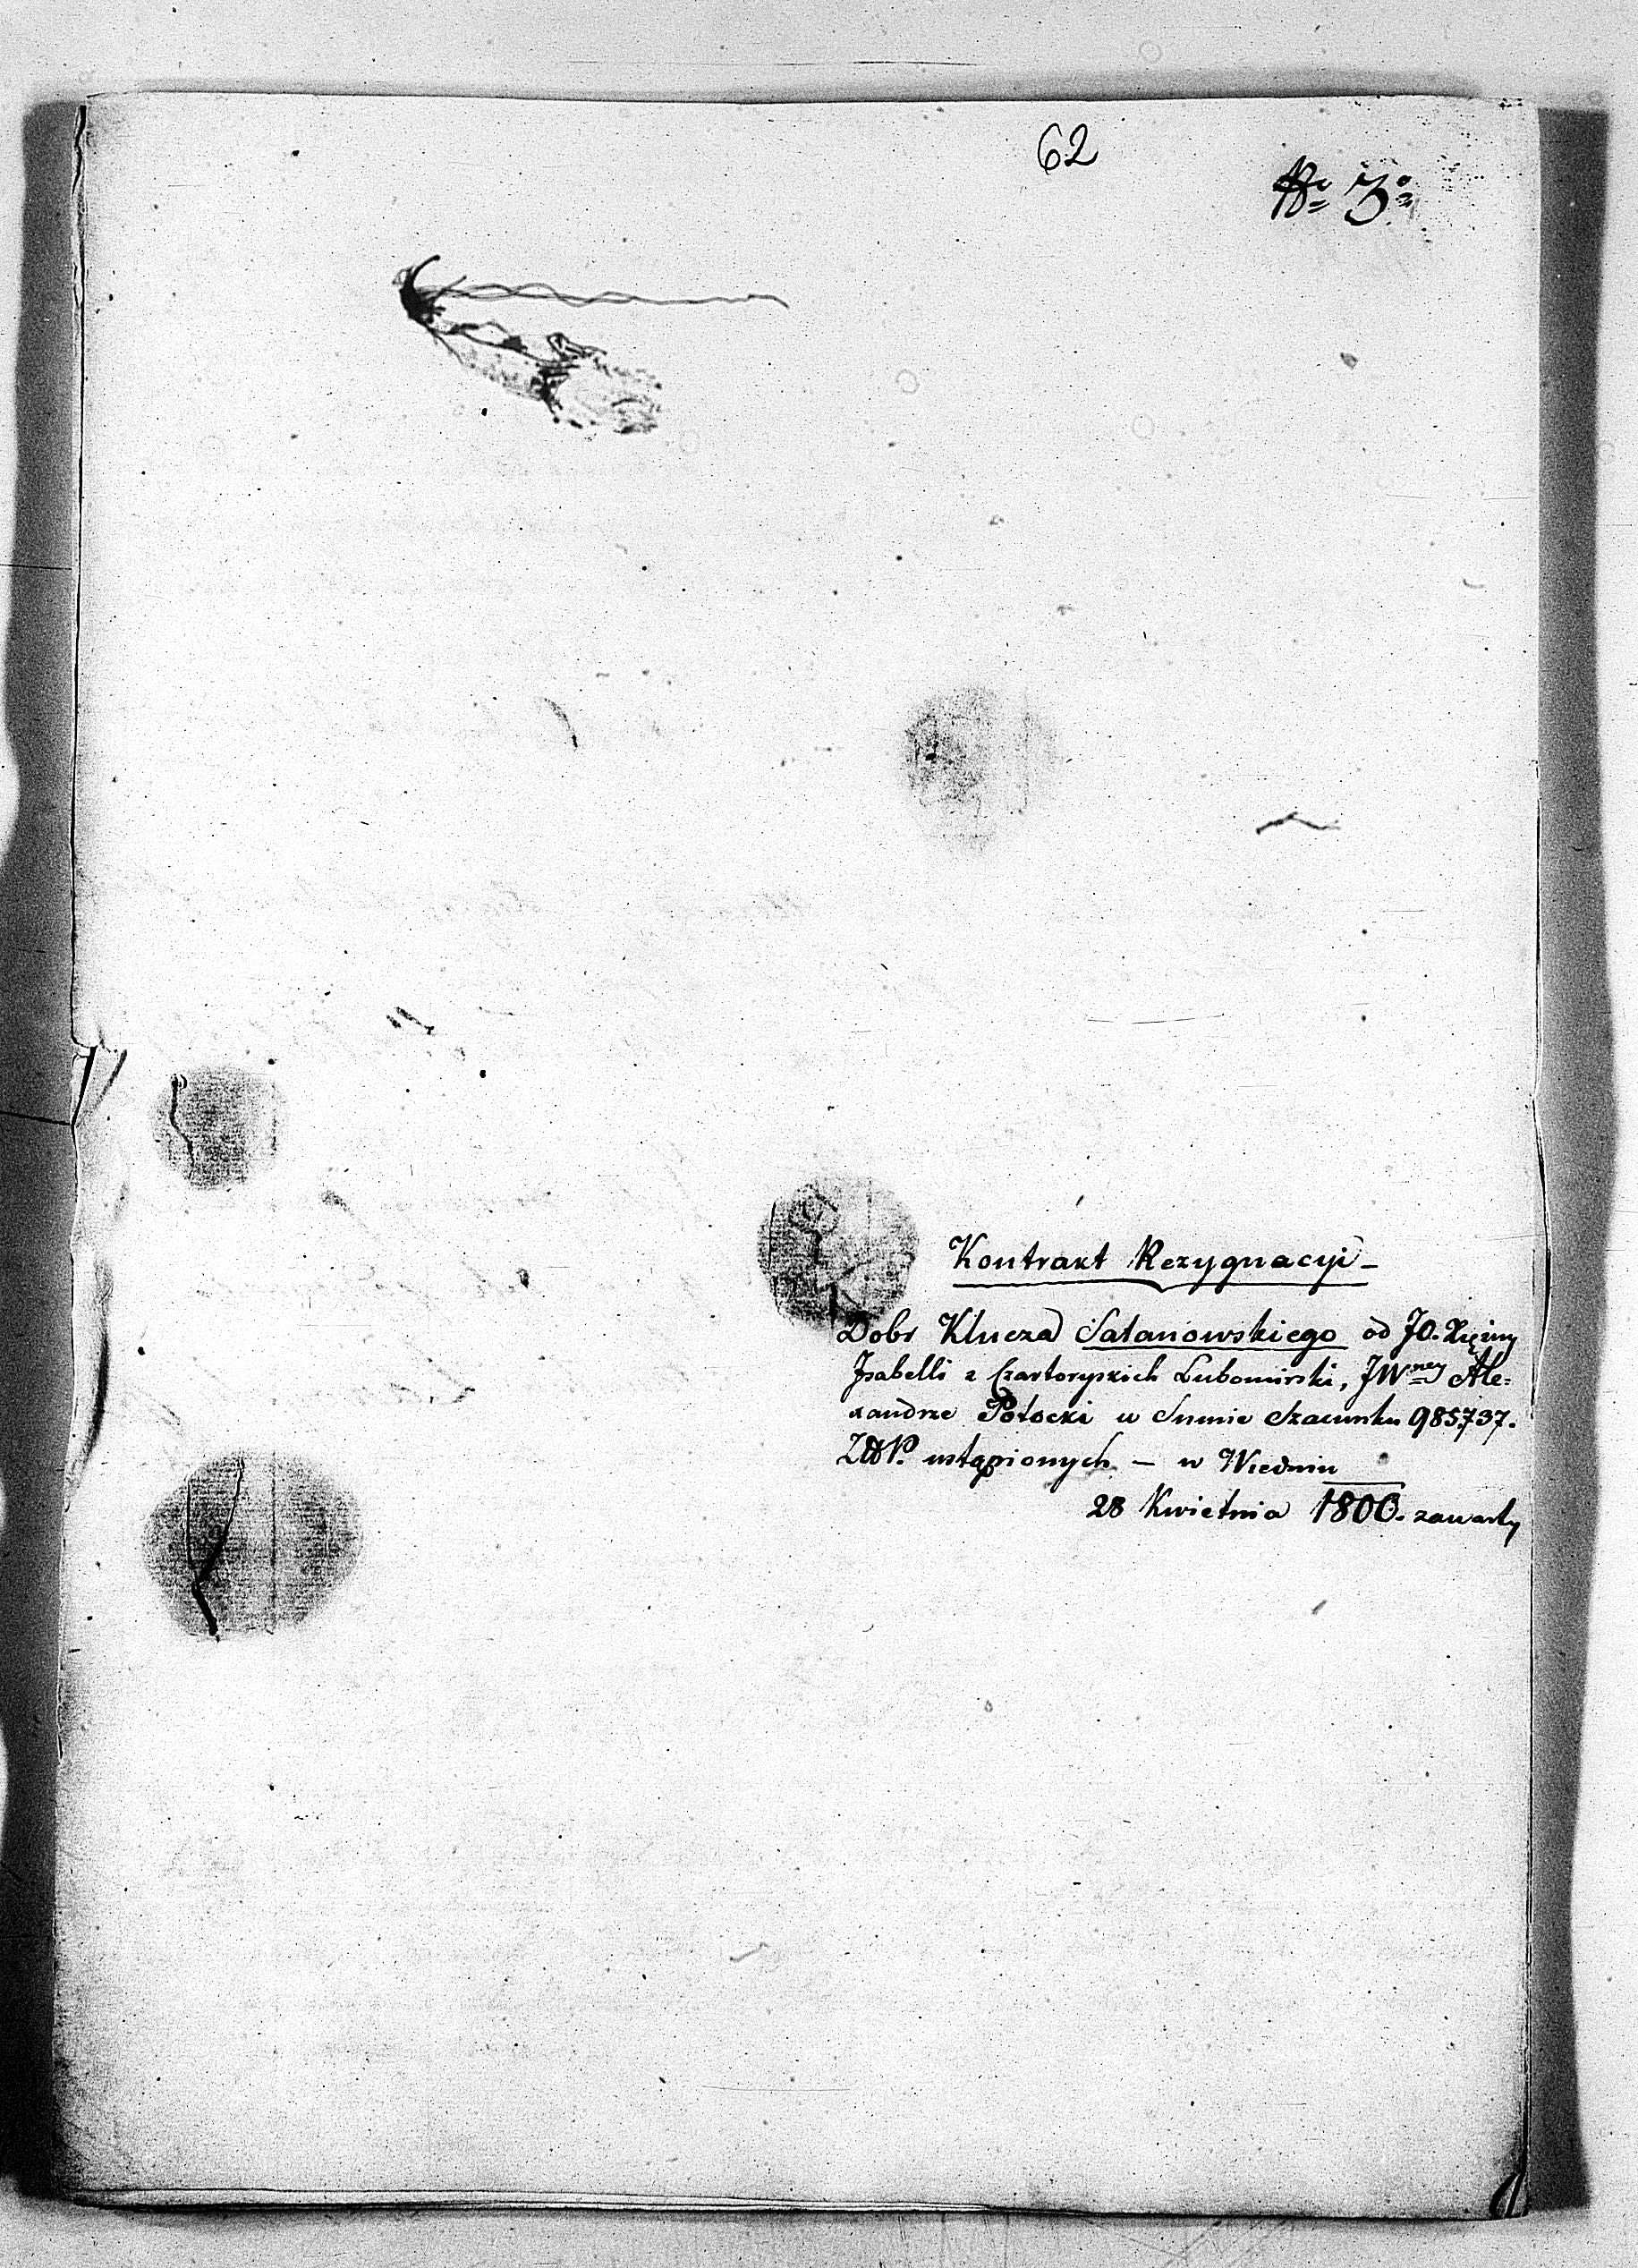 62
No 3o
Kontrakt Rezygnacyi –
Dobr Klucza Satanowskiego od JO. Xiężny
Izabelli z Czartoryskich Lubomirski, JWney Ale=
xandrze Potocki w Summie Szacunku 985,737.
ZłłP. ustąpionych – w Wiedniu
28 Kwietnia 1800. zawarty